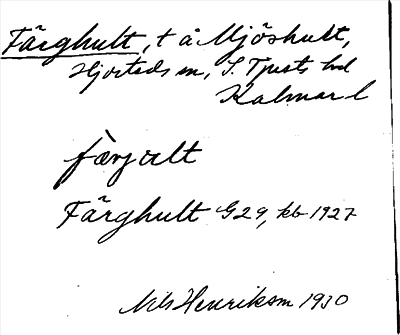 Färghult, t å Mjöshult,
Hjorteds sn, S. Tjusts hd
Kalmar l
færjɑlt
Färghult G 29, kb 1927
Nils Henrikson 1930